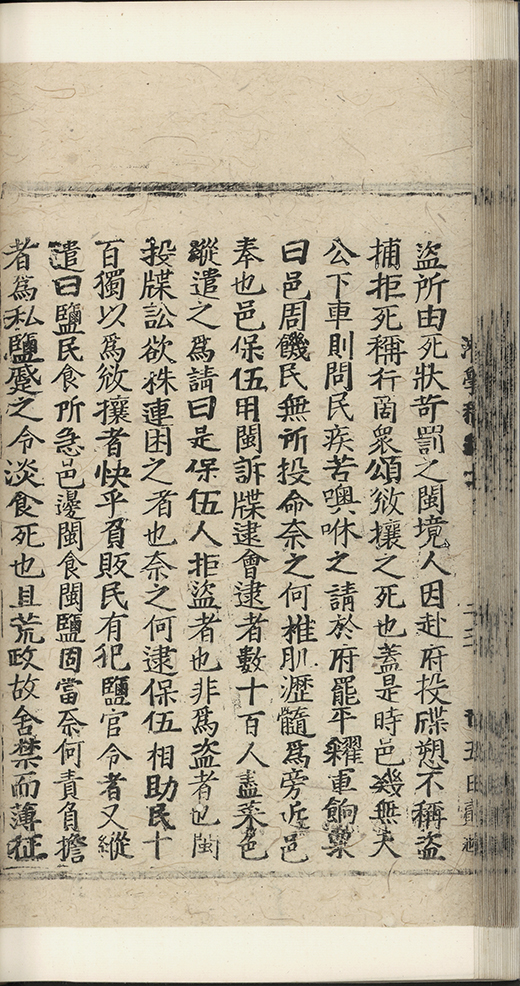 盜所由死狀苛罰之閩境人因赴府投牒愬不稱盜
捕拒死稱行啚衆頌攽攘之死也蓋是時邑幾無大
公下車則問民疾苦噢咻之請於府罷平糴車餉粟
曰邑周饑民無所投命奈之何椎肌瀝髓爲旁近邑
奉也邑保伍用閩訴牒逮會逮者數十百人盡菜色
縱遣之爲請曰是保伍人拒盜者也非爲盜者也閩
投牒訟欲株連困之者也奈之何逮保伍相助民十
百獨以爲攽攘者快乎負販民有犯鹽官令者又縱
遣曰鹽民食所急邑邊閩食閩鹽固當奈何責負擔
者爲私鹽蹙之令淡食死也且荒政故舍禁而薄征